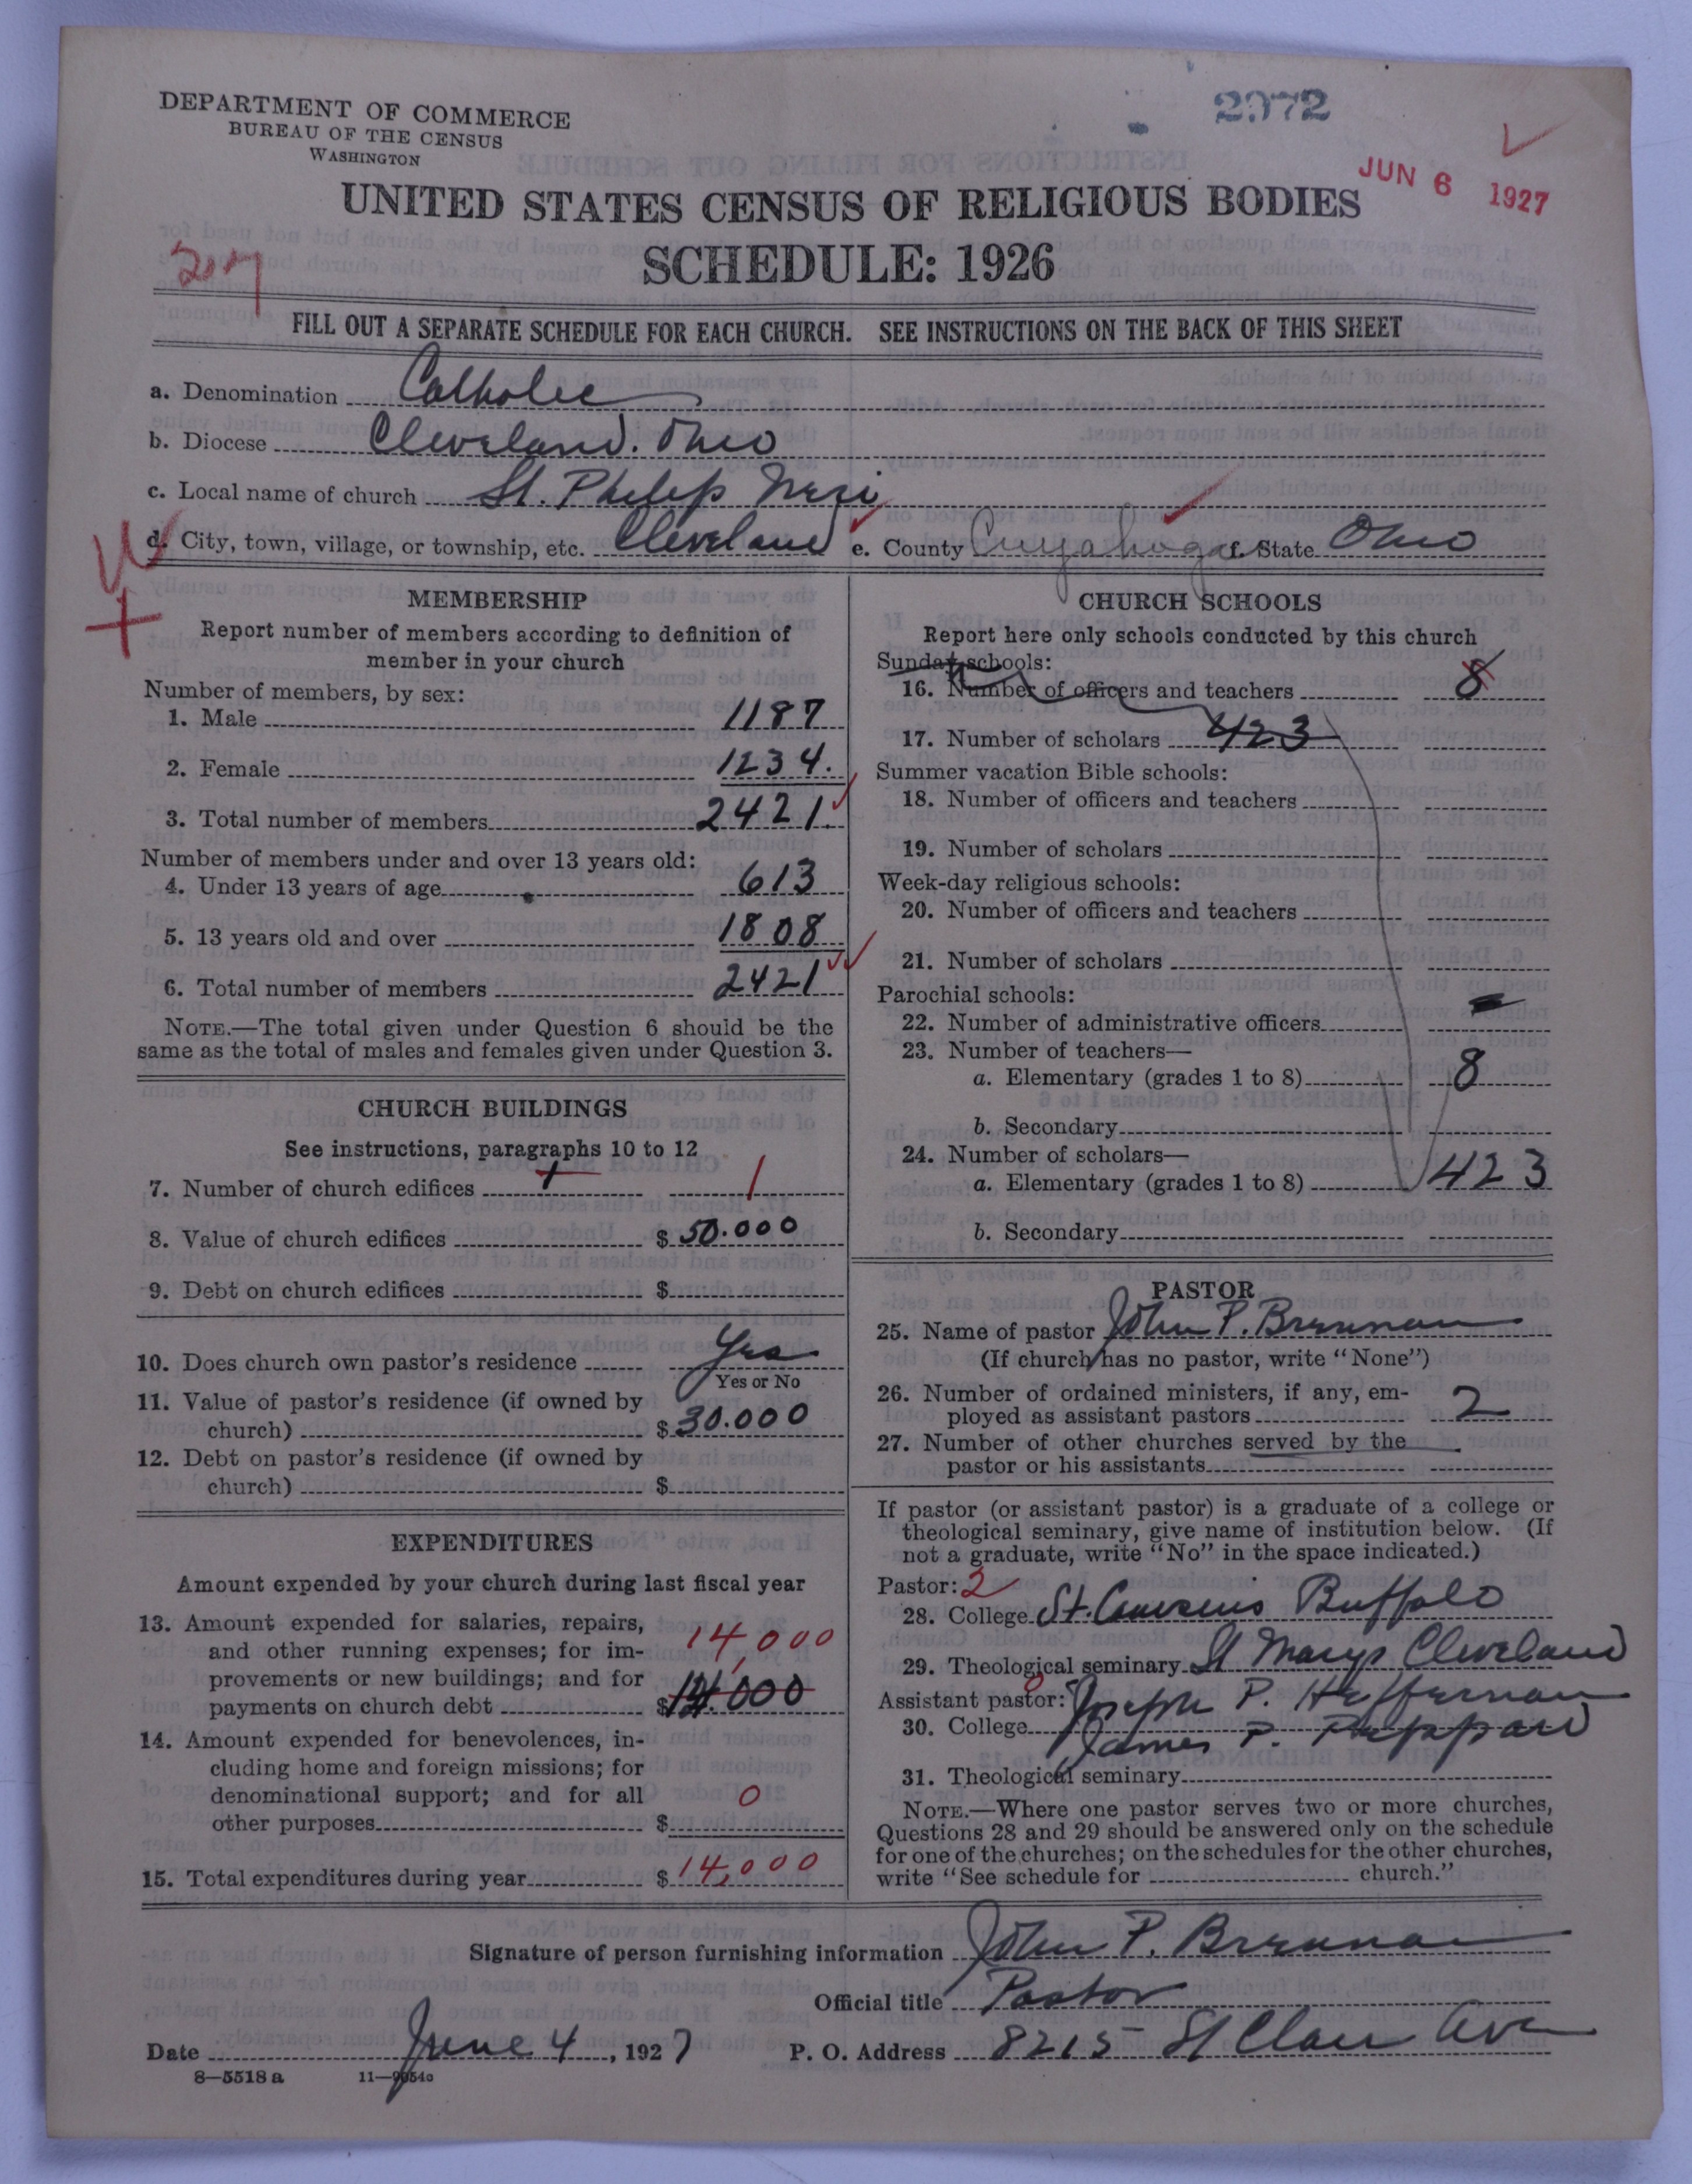 DEPARTMENT OF COMMERCE
BUREAU OF THE CENSUS
WASHINGTON
2972
JUN 6 1927
UNITED STATES CENSUS OF RELIGIOUS BODIES
SCHEDULE: 1926
FILL OUT A SEPARATE SCHEDULE FOR EACH CHURCH. SEE INSTRUCTIONS ON THE BACK OF THIS SHEET
a. Denomination Catholic
b. Diocese Cleveland. Ohio
c. Local name of church St. Philip Neri
d. City, town, village, or township, etc. Cleveland e. County Cuyahoga f. State Ohio
MEMBERSHIP
Report number of members according to definition of
member in your church
Number of members, by sex:
1. Male 1187
2. Female 1234.
3. Total number of members 2421
Number of members under and over 13 years old:
4. Under 13 years of age 613
5. 13 years old and over 1808
6. Total number of members 2421
NOTE.—The total given under Question 6 should be the
same as the total of males and females given under Question 3.
CHURCH BUILDINGS
See instructions, paragraphs 10 to 12
7. Number of church edifices 1 1
8. Value of church edifices $ 50.000
9. Debt on church edifices $
10. Does church own pastor's residence Yes
Yes or No
11. Value of pastor's residence (if owned by
church) $ 30.000
12. Debt on pastor's residence (if owned by
church) $
EXPENDITURES
Amount expended by your church during last fiscal year
13. Amount expended for salaries, repairs,
and other running expenses; for im-
provements or new buildings; and for
payments on church debt $ 14.000
14,000
14. Amount expended for benevolences, in-
cluding home and foreign missions; for
denominational support; and for all
other purposes $ 0
15. Total expenditures during year $ 14,000
CHURCH SCHOOLS
Report here only schools conducted by this church
Sunday schools:
16. Number of officers and teachers 8
17. Number of scholars 423
Summer vacation Bible schools:
18. Number of officers and teachers
19. Number of scholars
Week-day religious schools:
20. Number of officers and teachers
21. Number of scholars
Parochial schools:
22. Number of administrative officers
23. Number of teachers—
a. Elementary (grades 1 to 8) 8
b. Secondary
24. Number of scholars—
a. Elementary (grades 1 to 8) 423
b. Secondary
PASTOR
25. Name of pastor John P. Brennan
(If church has no pastor, write "None")
26. Number of ordained ministers, if any, em-
ployed as assistant pastors 2
27. Number of other churches served by the
pastor or his assistants
If pastor (or assistant pastor) is a graduate of a college or
theological seminary, give name of institution below. (If
not a graduate, write "No" in the space indicated.)
Pastor: 2
28. College St. Buffalo
29. Theological seminary St Marys Cleveland
Assistant pastor: Joseph P. Heffernan
30. College James P.
31. Theological seminary
NOTE.—Where one pastor serves two or more churches,
Questions 28 and 29 should be answered only on the schedule
for one of the churches; on the schedules for the other churches,
write "See schedule for church."
Signature of person furnishing information John P. Brennan
Official title Pastor
Date June 4, 1927 P. O. Address 8215 St Clair Ave
8—5518 a 11—9054a